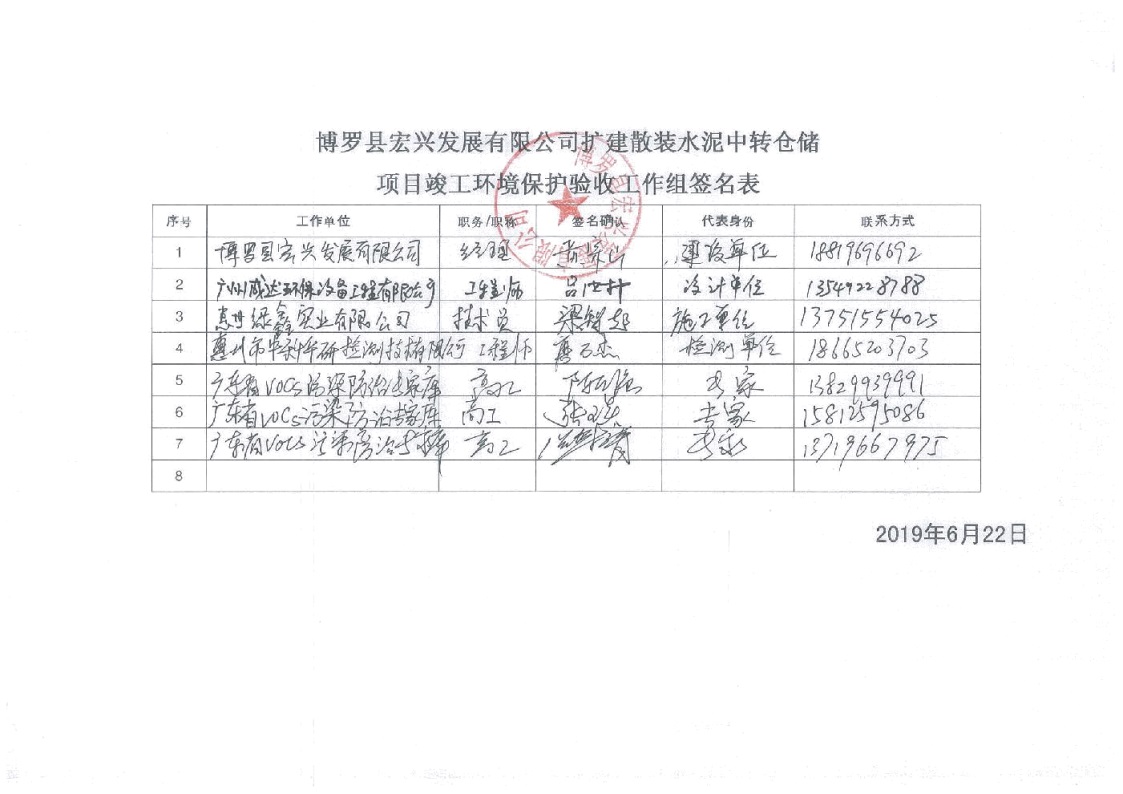 博罗县宏兴发展有限公司扩建散装水泥中转仓储
项目竣工环境保护验收工作组签名表
序号 工作单位 职务/职称 签名确认 代表身份 联系方式
1 博罗县宏兴发展有限公司 经理 建设单位 18819696692
2 广州威达环保设备工程有限公司 工程师 设计单位 13549228788
3 惠州绿鑫实业有限公司 技术员 梁智超 施工单位 13751554025
4 惠州市华科检测技术有限公司 工程师 检测单位 18665203703
5 广东省VOCs污染防治专家库 高工 专家 13829939991
6 广东省VOCs污染防治专家库 高工 专家 15812595086
7 广东省VOCs污染防治专家库 高工 专家 13719667975
8
2019年6月22日